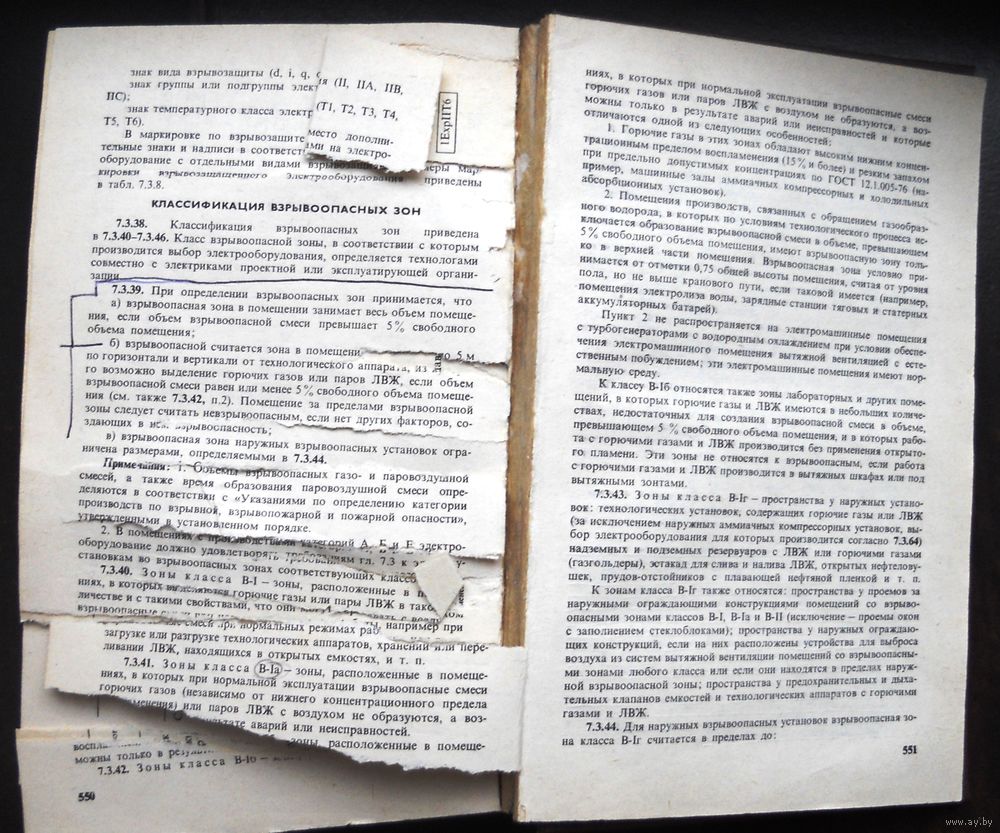 знак вида взрывозащиты (d, i, q,
знак группы или подгруппы элект
(II, IIA, IIB,
IIC);
знак температурного класса электр
(T1, T2, T3, T4,
T5, T6).
В маркировке по взрывозащите
место дополни-
тельные знаки и надписи в соответст
ами на электро-
оборудование с отдельными видами
кировки взрывозащищенного электрооборудования приведены
в табл. 7.3.8.
1ExpIIT6
КЛАССИФИКАЦИЯ ВЗРЫВООПАСНЫХ ЗОН
7.3.38. Классификация взрывоопасных зон приведена
в 7.3.40–7.3.46. Класс взрывоопасной зоны, в соответствии с которым
производится выбор электрооборудования, определяется технологами
совместно с электриками проектной или эксплуатирующей органи-
зации.
7.3.39. При определении взрывоопасных зон принимается, что
а) взрывоопасная зона в помещении занимает весь объем помеще-
ния, если объем взрывоопасной смеси превышает 5% свободного
объема помещения;
б) взрывоопасной считается зона в помещени
до 5 м
по горизонтали и вертикали от технологического аппарата, из
го возможно выделение горючих газов или паров ЛВЖ, если объем
взрывоопасной смеси равен или менее 5% свободного объема помеще-
ния (см. также 7.3.42, п.2). Помещение за пределами взрывоопасной
зоны следует считать невзрывоопасным, если нет других факторов, со-
здающих в нем взрывоопасность;
в) взрывоопасная зона наружных взрывоопасных установок огра-
ничена размерами, определяемыми в 7.3.44.
Примечания: 1. Объемы взрывоопасных газо- и паровоздушной
смесей, а также время образования паровоздушной смеси опре-
деляются в соответствии с «Указаниями по определению категории
производств по взрывной, взрывопожарной и пожарной опасности»,
утвержденными в установленном порядке.
2. В помещениях с производствами категорий А, Б и Е электро-
оборудование должно удовлетворять требованиям гл. 7.3 к
становкам во взрывоопасных зонах соответствующих классов
7.3.40. Зоны класса В-I – зоны, расположенные в
ниях, в которых выделяются горючие газы или пары ЛВЖ в таком
личестве и с такими свойствами, что они могут образовать с воздухом
взрывоопасные смеси при нормальных режимах работы, например при
загрузке или разгрузке технологических аппаратов, хранении или пере-
ливании ЛВЖ, находящихся в открытых емкостях, и т. п.
7.3.41. Зоны класса В-Iа – зоны, расположенные в помеще-
ниях, в которых при нормальной эксплуатации взрывоопасные смеси
горючих газов (независимо от нижнего концентрационного предела
воспламенения) или паров ЛВЖ с воздухом не образуются, а воз-
аварий или неисправностей.
зоны, расположенные в помеще-
можны только в
7.3.42. Зоны класса В-Iб –
550
ниях, в которых при нормальной эксплуатации взрывоопасные смеси
горючих газов или паров ЛВЖ с воздухом не образуются, а воз-
можны только в результате аварий или неисправностей и которые
отличаются одной из следующих особенностей:
1. Горючие газы в этих зонах обладают высоким нижним концен-
трационным пределом воспламенения (15% и более) и резким запахом
при предельно допустимых концентрациях по ГОСТ 12.1.005-76 (на-
пример, машинные залы аммиачных компрессорных и холодильных
абсорбционных установок).
2. Помещения производств, связанных с обращением газообраз-
ного водорода, в которых по условиям технологического процесса ис-
ключается образование взрывоопасной смеси в объеме, превышающем
5% свободного объема помещения, имеют взрывоопасную зону толь-
ко в верхней части помещения. Взрывоопасная зона условно при-
нимается от отметки 0,75 общей высоты помещения, считая от уровня
пола, но не выше кранового пути, если таковой имеется (например,
помещения электролиза воды, зарядные станции тяговых и статерных
аккумуляторных батарей).
Пункт 2 не распространяется на электромашинные помещения
с турбогенераторами с водородным охлаждением при условии обеспе-
чения электромашинного помещения вытяжной вентиляцией с есте-
ственным побуждением; эти электромашинные помещения имеют нор-
мальную среду.
К классу В-Iб относятся также зоны лабораторных и других поме-
щений, в которых горючие газы и ЛВЖ имеются в небольших количе-
ствах, недостаточных для создания взрывоопасной смеси в объеме,
превышающем 5 % свободного объема помещения, и в которых рабо-
та с горючими газами и ЛВЖ производится без применения открыто-
го пламени. Эти зоны не относятся к взрывоопасным, если работа
с горючими газами и ЛВЖ производится в вытяжных шкафах или под
вытяжными зонтами.
7.3.43. Зоны класса В-Iг – пространства у наружных устано-
вок: технологических установок, содержащих горючие газы или ЛВЖ
(за исключением наружных аммиачных компрессорных установок, вы-
бор электрооборудования для которых производится согласно 7.3.64)
надземных и подземных резервуаров с ЛВЖ или горючими газами
(газгольдеры), эстакад для слива и налива ЛВЖ, открытых нефтелову-
шек, прудов-отстойников с плавающей нефтяной пленкой и т. п.
К зонам класса В-Iг также относятся: пространства у проемов за
наружными ограждающими конструкциями помещений со взрыво-
опасными зонами классов В-I, В-Iа и В-II (исключение – проемы окон
с заполнением стеклоблоками); пространства у наружных ограждаю-
щих конструкций, если на них расположены устройства для выброса
воздуха из систем вытяжной вентиляции помещений со взрывоопасны-
ми зонами любого класса или если они находятся в пределах наруж-
ной взрывоопасной зоны; пространства у предохранительных и дыха-
тельных клапанов емкостей и технологических аппаратов с горючими
газами и ЛВЖ.
7.3.44. Для наружных взрывоопасных установок взрывоопасная зо-
на класса В-Iг считается в пределах до:
551
www.ay.by